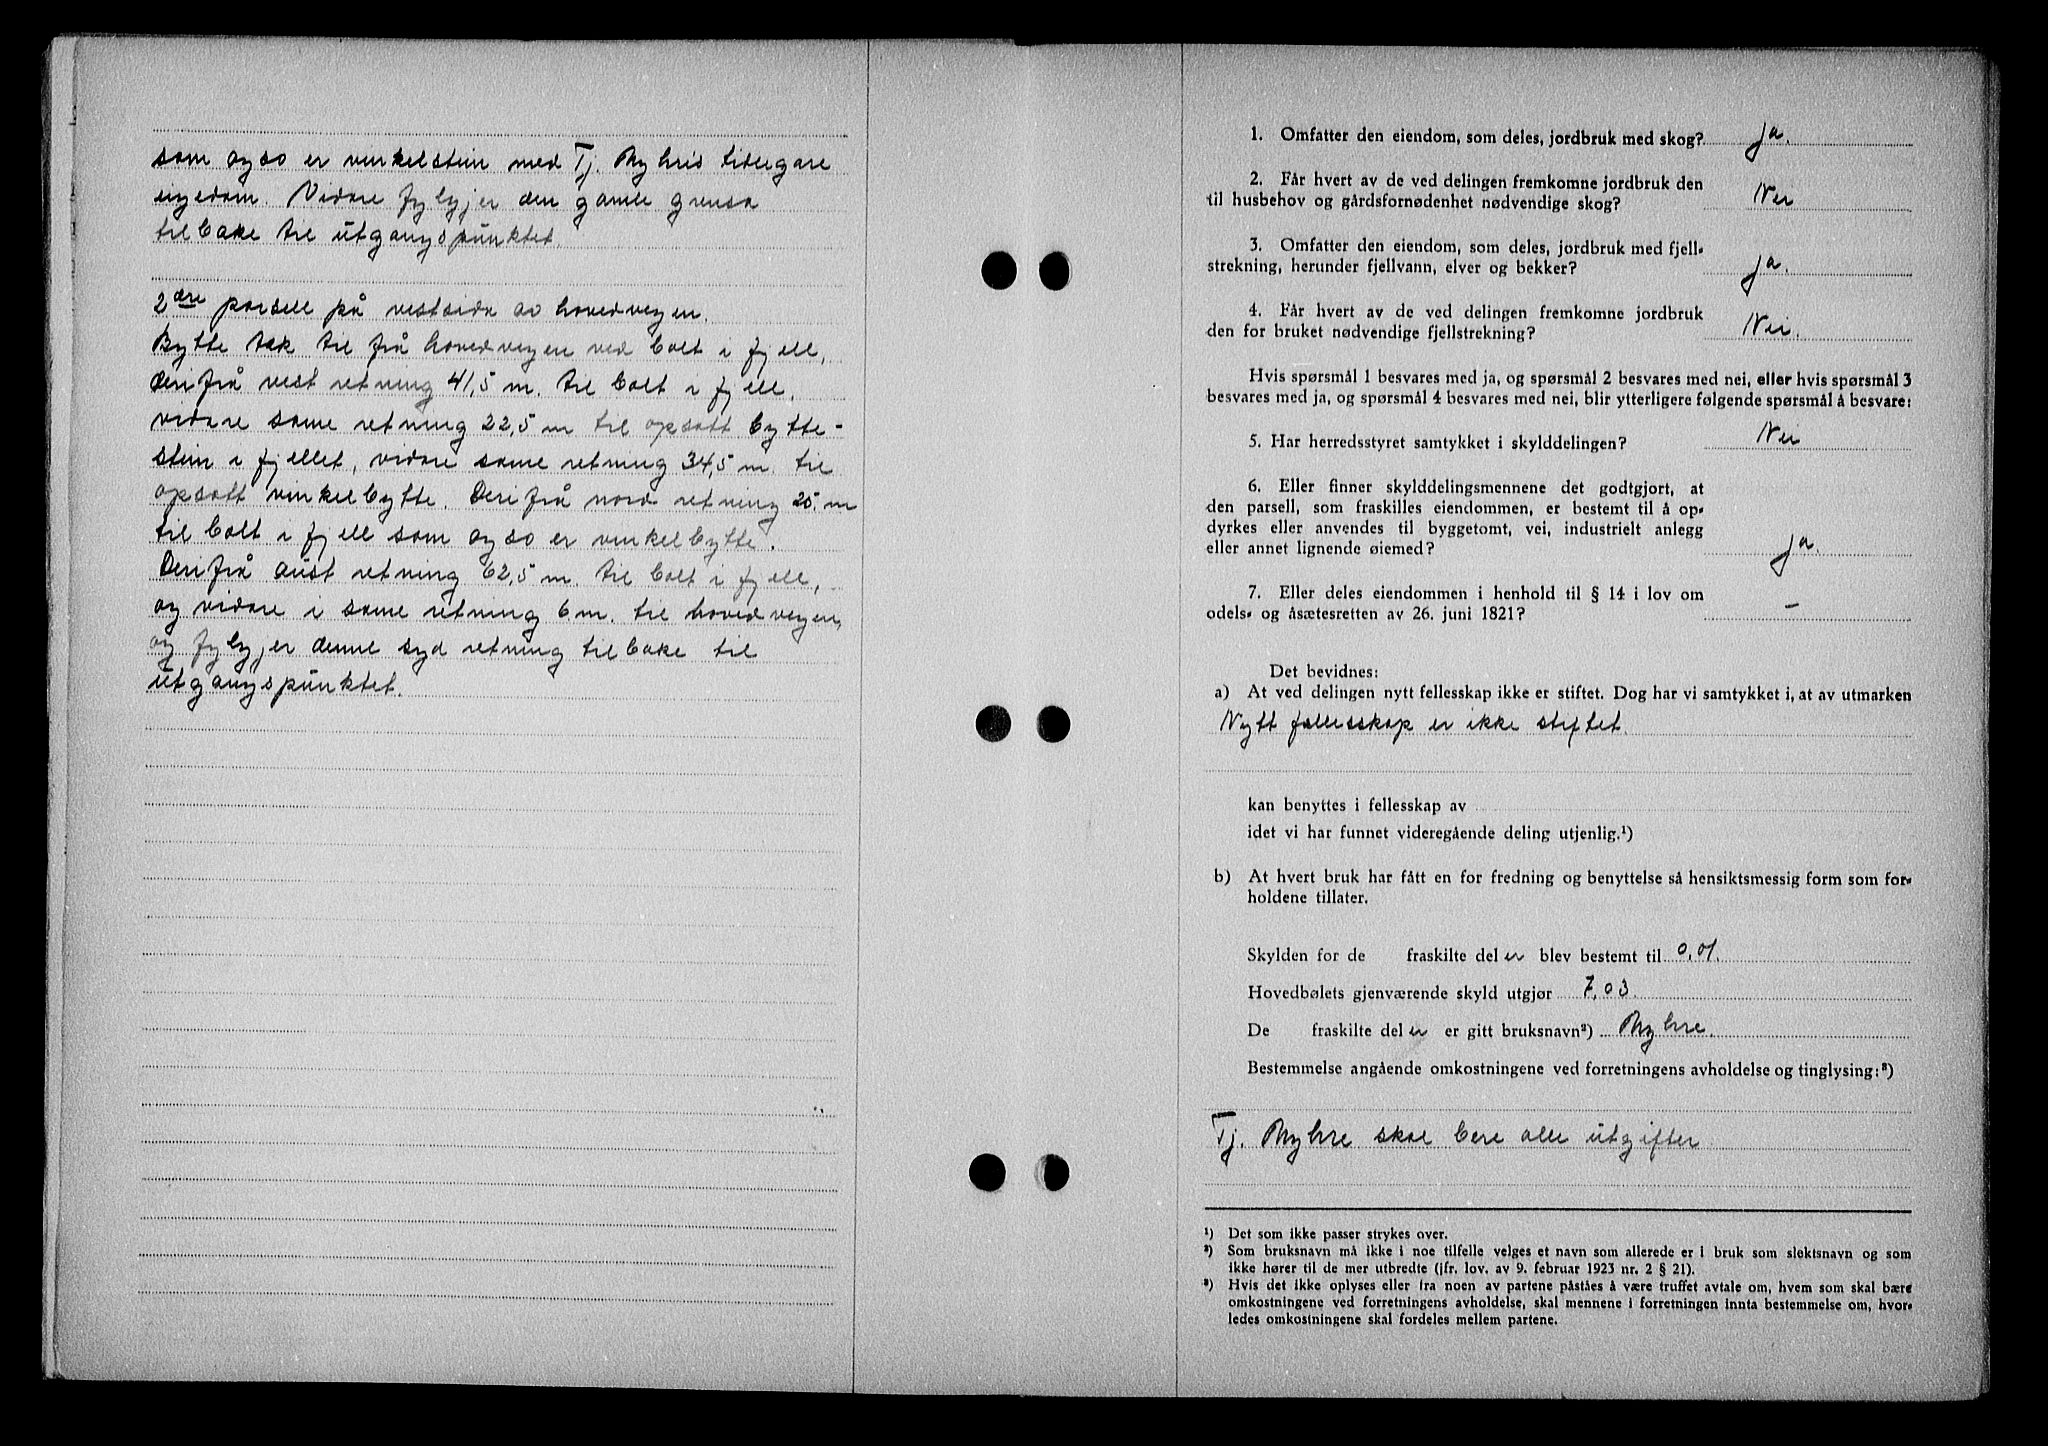 som ogso er vinkelstein med Tj. Myhris tidligare
eigedom. Vidare fylgjer den gamle grensa
tilbake til utgangspunktet.
2dre parsell på vestsida av hovedvegen.
Bytte tek til frå hovedvegen ved bolt i fjell,
derifrå vest retning 41,5 m. til bolt i fjell,
vidare same retning 22,5 m til opsatt bytte-
stein i fjellet, vidare same retning 34,5 m. til
opsatt vinkelbytte. Derifrå nord retning 25 m
til bolt i fjell som ogso er vinkelbytte.
Derifrå aust retning 62,5 m. til bolt i fjell,
og vidare i same retning 6 m. til hovedvegen,
og fylgjer denne syd retning tilbake til
utgangspunktet.
1. Omfatter den eiendom, som deles, jordbruk med skog? Ja.
2. Får hvert av de ved delingen fremkomne jordbruk den
til husbehov og gårdsfornødenhet nødvendige skog? Nei
3. Omfatter den eiendom, som deles, jordbruk med fjell-
strekning, herunder fjellvann, elver og bekker? ja.
4. Får hvert av de ved delingen fremkomne jordbruk
den for bruket nødvendige fjellstrekning? Nei.
Hvis spørsmål 1 besvares med ja, og spørsmål 2 besvares med nei, eller hvis spørsmål 3
besvares med ja, og spørsmål 4 besvares med nei, blir ytterligere følgende spørsmål å besvare:
5. Har herredsstyret samtykket i skylddelingen? Nei
6. Eller finner skylddelingsmennene det godtgjort, at
den parsell, som fraskilles eiendommen, er bestemt til å op-
dyrkes eller anvendes til byggetomt, vei, industrielt anlegg
eller annet lignende øiemed? ja.
7. Eller deles eiendommen i henhold til § 14 i lov om
odels- og åsætesretten av 26. juni 1821? –
Det bevidnes:
a) At ved delingen nytt fellesskap ikke er stiftet. Dog har vi samtykket i, at av utmarken
Nytt fellesskap er ikke stiftet.
kan benyttes i fellesskap av
idet vi har funnet videregående deling utjenlig.¹)
b) At hvert bruk har fått en for fredning og benyttelse så hensiktsmessig form som for-
holdene tillater.
Skylden for de fraskilte del er blev bestemt til 0,01.
Hovedbølets gjenværende skyld utgjør 7,03.
De fraskilte del er er gitt bruksnavn²) Myhre.
Bestemmelse angående omkostningene ved forretningens avholdelse og tinglysing:³)
Tj. Myhre skal bere alle utgifter
¹) Det som ikke passer strykes over.
²) Som bruksnavn må ikke i noe tilfelle velges et navn som allerede er i bruk som slektsnavn og som
ikke hører til de mer utbredte (jfr. lov. av 9. februar 1923 nr. 2 § 21).
³) Hvis det ikke oplyses eller fra noen av partene påstås å være truffet avtale om, hvem som skal bære
omkostningene ved forretningens avholdelse, skal mennene i forretningen innta bestemmelse om, hvor-
ledes omkostningene skal fordeles mellem partene.